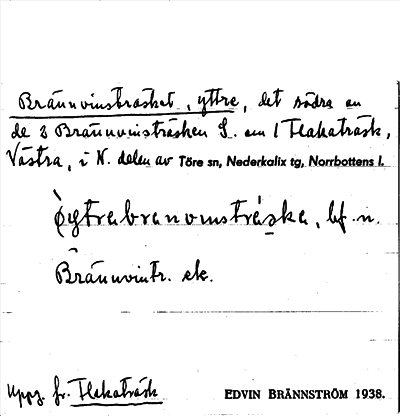 Brännvinsträsket, yttre, det södra av
de 2 Brännvinsträsken S. om 1 Flakaträsk,
Västra, i N. delen av Töre sn, Nederkalix tg, Norrbottens l.
bf. n.
Brännvintr. sk.
Uppg. fr. Flakaträsk
EDVIN BRÄNNSTRÖM 1938.